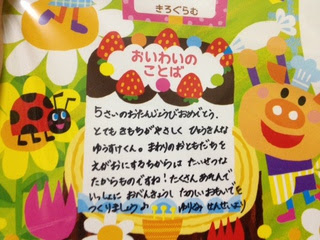 きろぐらむ
おいわいの
ことば
5さいのおたんじょうびおめでとう。
とても きもちが やさしく ひょうきんな
ゆうすけくん。まわりのおともだちを
えがおにするちからは たいせつな
たからものですね! たくさん あそんで
いっしょに おべんきょうし たのしいおもいでを
つくりましょう♪ ゆりぐみ せんせいより